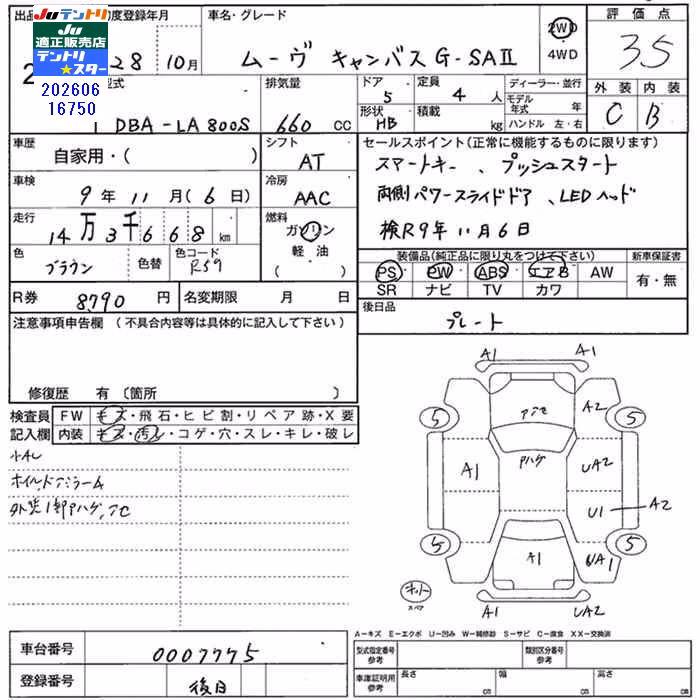 出品
度登録年月
28
10月
車名・グレード
ムーヴ キャンバス G・SAⅡ
2WD
4WD
評価点
3.5
Juテントリ
Ju
適正販売店
テントリ
★スター
202606
16750
型式
DBA-LA800S
排気量
660 CC
ドア
5
定員
4 人
ディーラー・並行
モデル年式 年
外装 内装
C B
形状
HB
積載
kg
ハンドル 左・右
車歴
自家用・( )
シフト
AT
セールスポイント(正常に機能するものに限ります)
スマートキー、プッシュスタート
両側パワースライドドア、LEDヘッド
検R9年11月6日
車検
9年11月(6日)
冷房
AAC
走行
14万3千668 km
燃料
ガソリン
軽油
( )
色
ブラウン
色替
色コード
R59
装備品(純正品に限り丸をつけて下さい)
PS・PW・ABS・エアB・AW
SR ナビ TV カワ
新車保証書
有・無
R券
8790円
名変期限 月 日
後日品
プレート
注意事項申告欄 (不具合内容等は具体的に記入して下さい)
修復歴 有〔箇所 〕
検査員
記入欄
FW キズ・飛石・ヒビ割・リペア跡・X要
内装 キズ・汚レ・コゲ・穴・スレ・キレ・破レ
小AU
外装1部Pハゲ、アセ
A1 A1
アセ
A2
5 5
A1
Pハゲ
UA2
U1
A2
5 5
A1
UA1
キット
スペア
A1 UA2
A－キズ E－エクボ U－凹み W－補修跡 S－サビ C－腐食 XX－交換済
車台番号
0007775
登録番号
後日
型式指定番号
参考
類別区分番号
参考
車庫証明用
参考
長さ
cm
幅
cm
高さ
cm